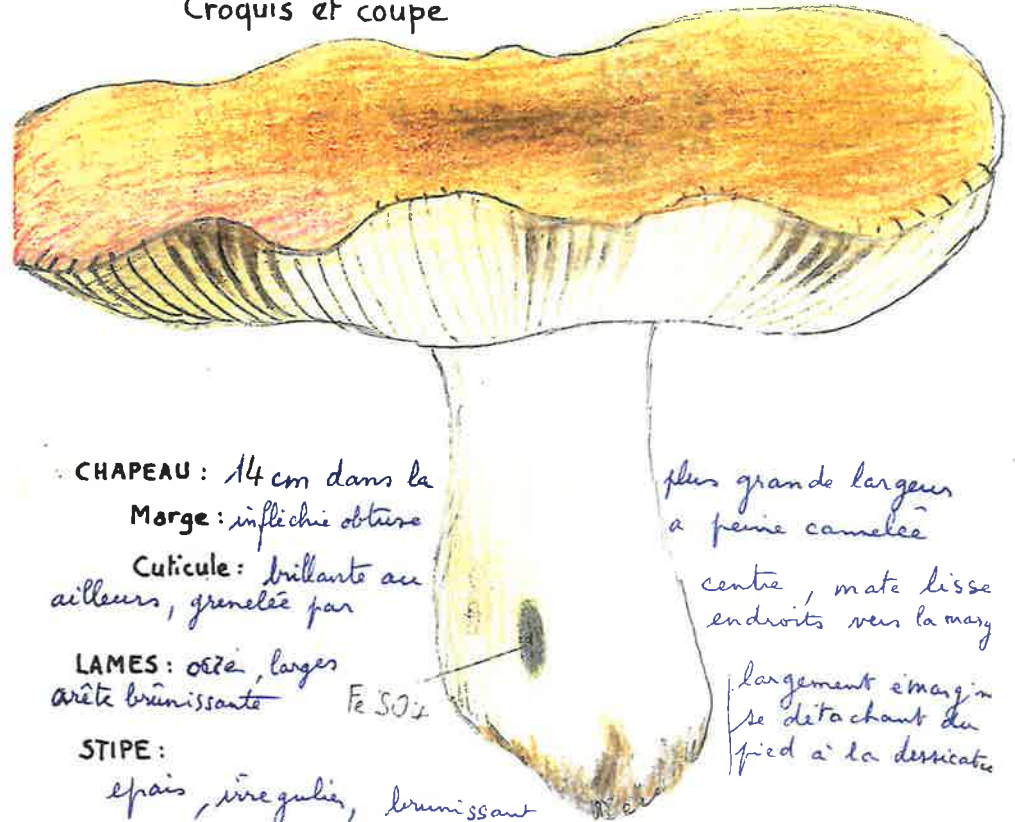 Croquis et coupe
CHAPEAU : 14 cm dans la plus grande largeur
Marge : infléchie obtuse a peine cannelée
Cuticule : brillante au centre, mate lisse
ailleurs, grenelée par endroits vers la marg
LAMES : ocré, larges largement émargin
arête brûnissante se détachant du
pied à la dessicatio
Fe SO4
STIPE :
epais, irregulier, brunissant